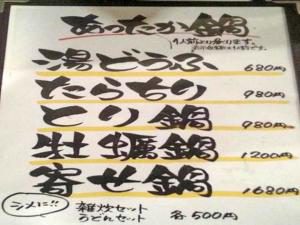 あったか鍋
1人前より承ります。
表示金額は1人前です。
湯どうふ 680円
たらちり 980円
とり鍋 980円
牡蠣鍋 1200円
寄せ鍋 1680円
シメに!! 雑炊セット
うどんセット 各500円